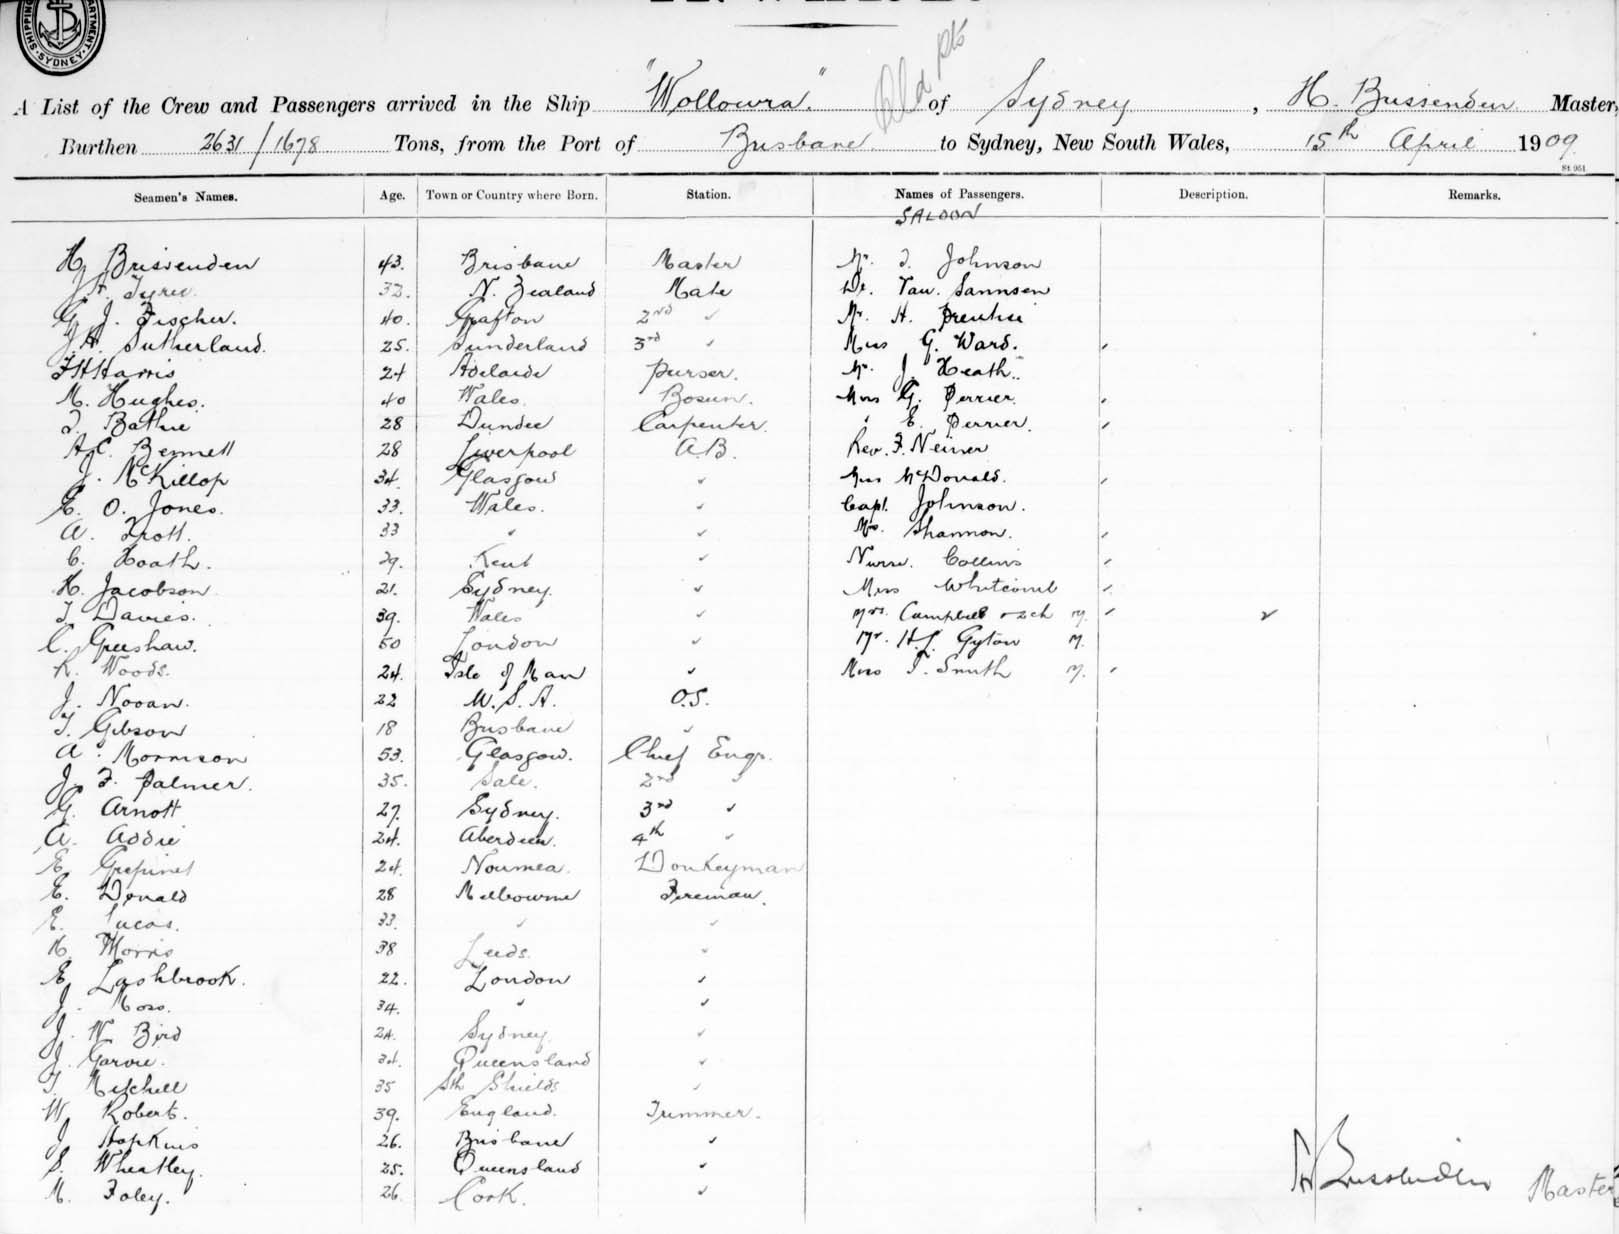 SHIPPING DEPARTMENT. SYDNEY.
A List of the Crew and Passengers arrived in the Ship "Wollowra." of Sydney, H. Brissenden Master,
Burthen 2631/1678 Tons, from the Port of Brisbane to Sydney, New South Wales, 15th April 1909
St 951
Seamen's Names. Age. Town or Country where Born. Station. Names of Passengers. Description. Remarks.
SALOON
H. Brissenden 43. Brisbane Master Mr. T. Johnson
32. N. Zealand Mate Dr. Van.
G. J. Fischer. 40. Grafton 2nd " Mr. H. Prentice
J. A. Sutherland. 25. Sunderland 3rd " Miss G. Ward.
F H Harris 24 Adelaide Purser. Mr. J. Heath.
M. Hughes. 40 Wales. Bosun. Miss G. Perrier.
T. Bathie 28 Dundee Carpenter. " E. Perrier.
A. E. Bennett 28 Liverpool A.B. Rev. F.
J. McKillop 34. Glasgow " Miss McDonald.
E. O. Jones. 33. Wales. " Capt. Johnson.
A. Trott. 33 " " Mrs. Shannon.
C. Hoath. 29. Kent " Nurse. Collins
H. Jacobson 21. Sydney. " Miss Whitcomb
T. Davies. 39. Wales " Mrs. Campbell + 2ch M.
C. 50 London " Mr. H.L. Gyton M.
R. Woods. 24. Isle of Man " Miss T. Smith M.
J. 22 U.S.A. O.S.
T. Gibson 18 Brisbane "
A. Morrison 53. Glasgow. Chief Engr.
J. F. Palmer. 35. Sale. 2nd "
G. Arnott 27. Sydney. 3rd "
A. Addie 24. Aberdeen. 4th "
E. 24. Noumea. Donkeyman
E. Donald 28 Melbourne Fireman.
E. Lucas. 33. " "
H. Morris 38 Leeds. "
E. Lashbrook. 22. London "
J. Moss. 34. " "
J. W. Bird 24. Sydney. "
J. Garvie. 34. Queensland "
T. Mitchell 35 Sth Shields "
W. Robert. 39. England. Trimmer.
J. Hopkins 26. Brisbane "
S. Wheatley. 25. Queensland "
M. Foley. 26. Cork. "
H Brissenden Master